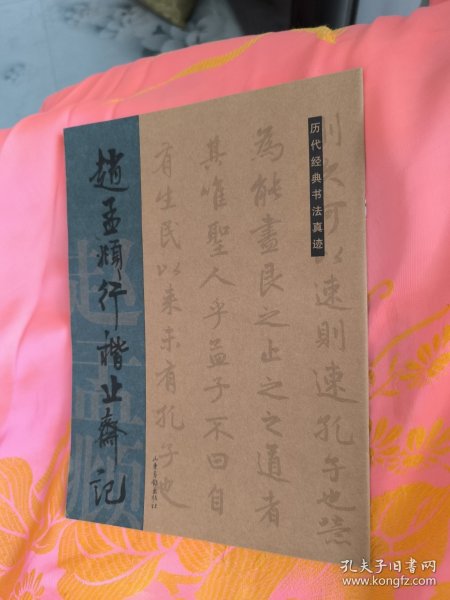 历代经典书法真迹
則久可以速則速孔子也嗟
為能盡艮之止之之道者
其唯聖人乎孟子不曰自
有生民以來未有孔子也
趙孟頫行楷止齋記
山東畫報出版社
孔夫子旧书网
www.kongfz.com